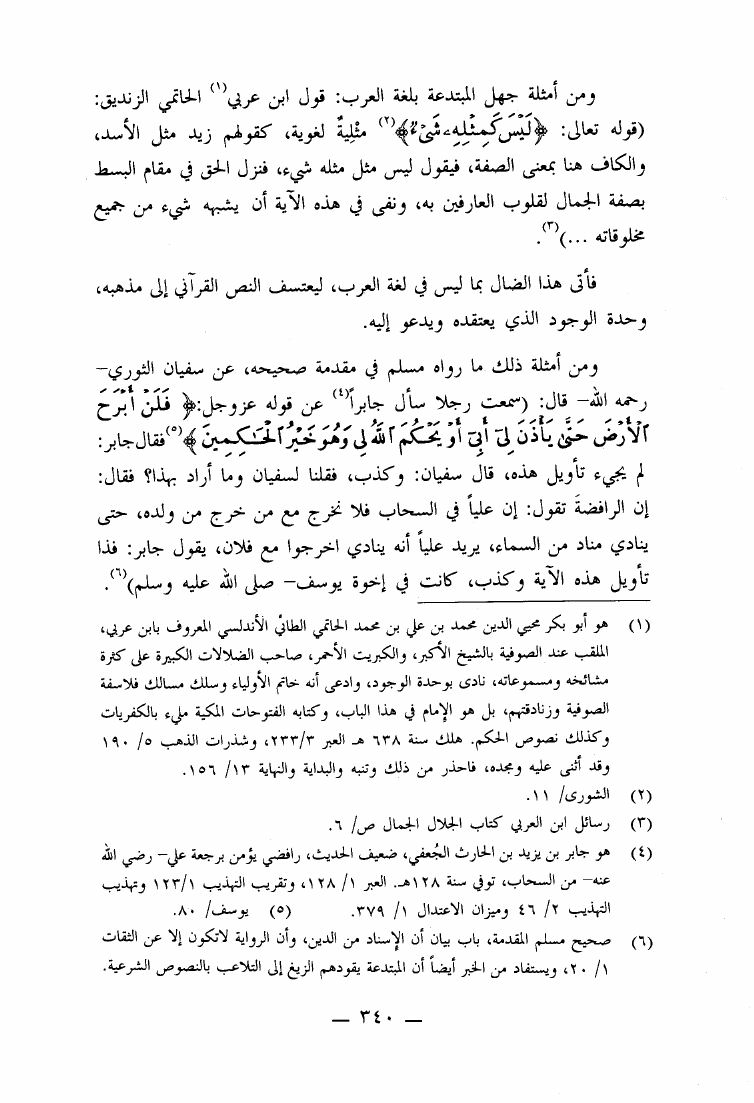 ومن أمثلة جهل المبتدعة بلغة العرب: قول ابن عربي(١) الحاتمي الزنديق:
(قوله تعالى: ﴿لَيْسَ كَمِثْلِهِۦ شَىْءٌ﴾(٢) مثْلِيةٌ لغوية، كقولهم زيد مثل الأسد،
والكاف هنا بمعنى الصفة، فيقول ليس مثل مثله شيء، فنزل الحق في مقام البسط
بصفة الجمال لقلوب العارفين به، ونفى في هذه الآية أن يشبهه شيء من جميع
مخلوقاته ...)(٣).
فأتى هذا الضال بما ليس في لغة العرب، ليعتسف النص القرآني إلى مذهبه،
وحدة الوجود الذي يعتقده ويدعو إليه.
ومن أمثلة ذلك ما رواه مسلم في مقدمة صحيحه، عن سفيان الثوري–
رحمه الله– قال: (سمعت رجلا سأل جابراً(٤) عن قوله عزوجل:﴿ فَلَنْ أَبْرَحَ
الْأَرْضَ حَتَّىٰ يَأْذَنَ لِىٓ أَبِىٓ أَوْ يَحْكُمَ اللَّهُ لِى وَهُوَ خَيْرُ الْحَٰكِمِينَ ﴾(٥)فقال جابر:
لم يجيء تأويل هذه، قال سفيان: وكذب، فقلنا لسفيان وما أراد بهذا؟ فقال:
إن الرافضةَ تقول: إن علياً في السحاب فلا نخرج مع من خرج من ولده، حتى
ينادي مناد من السماء، يريد علياً أنه ينادي اخرجوا مع فلان، يقول جابر: فذا
تأويل هذه الآية وكذب، كانت في إخوة يوسف– صلى الله عليه وسلم)(٦).
(١) هو أبو بكر محيي الدين محمد بن علي بن محمد الحاتمي الطائي الأندلسي المعروف بابن عربي،
الملقب عند الصوفية بالشيخ الأكبر، والكبريت الأحمر، صاحب الضلالات الكبيرة على كثرة
مشائخه ومسموعاته، نادى بوحدة الوجود، وادعى أنه خاتم الأولياء وسلك مسالك فلاسفة
الصوفية وزنادقتهم، بل هو الإمام في هذا الباب، وكتابه الفتوحات المكية مليء بالكفريات
وكذلك نصوص الحكم. هلك سنة ٦٣٨ هـ العبر ٢٣٣/٣، وشذرات الذهب ٥/ ١٩٠
وقد أثنى عليه ومجده، فاحذر من ذلك وتنبه والبداية والنهاية ١٣/ ١٥٦.
(٢) الشورى/ ١١.
(٣) رسائل ابن العربي كتاب الجلال الجمال ص/ ٦.
(٤) هو جابر بن يزيد بن الحارث الجُعفي، ضعيف الحديث، رافضي يؤمن برجعة علي– رضي الله
عنه– من السحاب، توفي سنة ١٢٨هـ. العبر ١/ ١٢٨، وتقريب التهذيب ١٢٣/١ وتهذيب
التهذيب ٢/ ٤٦ وميزان الاعتدال ١/ ٣٧٩. (٥) يوسف/ ٨٠.
(٦) صحيح مسلم المقدمة، باب بيان أن الإسناد من الدين، وأن الرواية لاتكون إلا عن الثقات
١/ ٢٠، ويستفاد من الخبر أيضاً أن المبتدعة يقودهم الزيغ إلى التلاعب بالنصوص الشرعية.
— ٣٤٠ —